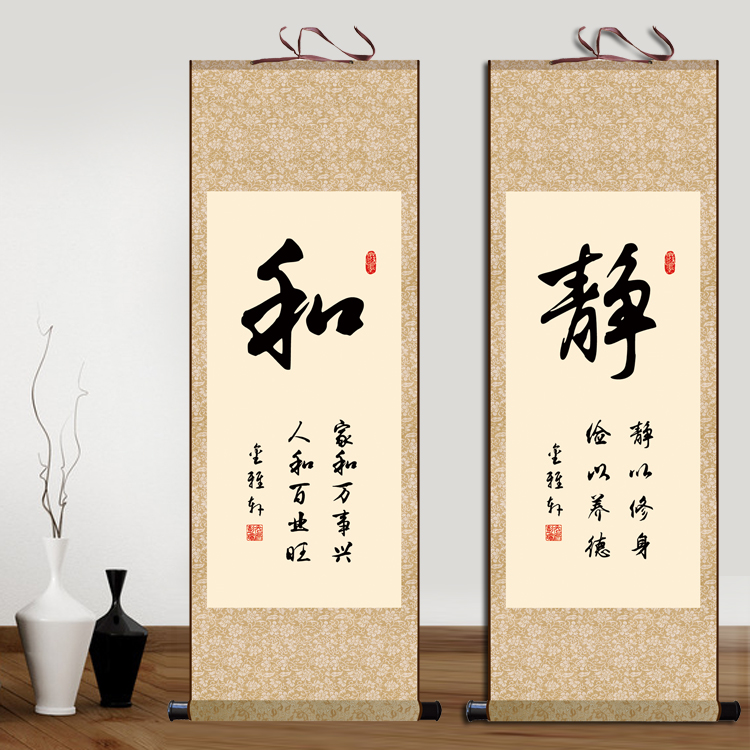 和
家和万事兴
人和百业旺
金雅轩
静
静以修身
俭以养德
金雅轩